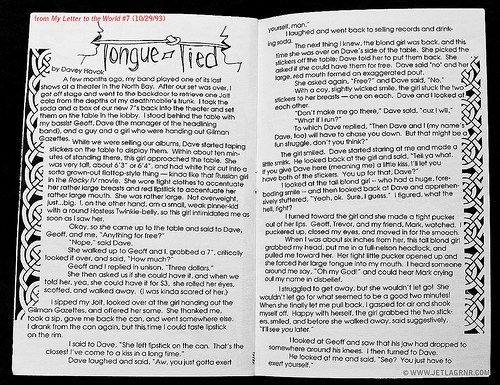 from My Letter to the World #7 (10/29/93)
Tongue-Tied
by Davey Havok
A few months ago, my band played one of its last
shows at a theater in the North Bay. After our set was over, I
got off stage and went to the backdoor to retrieve one Jolt
cola from the depths of my deathmobile's trunk. I took the
soda and a box of our new 7"s back into the theater and set
them on the table in the lobby. I stood behind the table with
my bassist Geoff, Dave (the manager of the headlining
band), and a guy and a girl who were handing out Gilman
Gazettes.
While we were selling our albums, Dave started taping
stickers on the table to display them. Within about ten min-
utes of standing there, this girl approached the table. She
was very tall, about 6'3" or 6'4", and had white hair cut into a
sorta grown-out flattop-style thing — kinda like that Russian girl
in the Rocky IV movie. She wore tight clothes to accentuate
her rather large breasts and red lipstick to accentuate her
rather large mouth. She was rather large. Not overweight,
just...big. I, on the other hand, am a small, weak pinner-kid
with a round Hostess Twinkie-belly, so this girl intimidated me as
soon as I saw her.
Okay, so she came up to the table and said to Dave,
Geoff, and me, "Anything for free?"
"Nope," said Dave.
She walked up to Geoff and I, grabbed a 7", critically
looked it over, and said, "How much?"
Geoff and I replied in unison, "Three dollars."
She then asked us if she could have it, and when we
told her, yea, she could have it for $3, she rolled her eyes,
scoffed, and walked away. (I was kinda scared of her.)
I sipped my Jolt, looked over at the girl handing out the
Gilman Gazettes, and offered her some. She thanked me,
took a sip, gave me back the can, and went somewhere else.
I drank from the can again, but this time I could taste lipstick
on the rim.
I said to Dave, "She left lipstick on the can. That's the
closest I've come to a kiss in a long time."
Dave laughed and said, "Aw, you just gotta exert
yourself, man."
I laughed and went back to selling records and drink-
ing soda.
The next thing I knew, the blond girl was back, and this
time she was over on Dave's side of the table. She picked the
stickers off the table; Dave told her to put them back. She
asked if she could have them for free. Dave said "no" and her
large, red mouth formed an exaggerated pout.
She asked again. "Free?" and Dave said, "No."
With a coy, slightly wicked smile, the girl stuck the two
stickers to her breasts — one on each. Dave and I looked at
each other.
"Don't make me go there," Dave said, "cuz I will."
"What if I run?"
To which Dave replied, "Then Dave and I (my name's
Dave, too) will have to chase you down. But that might be a
fun struggle, don't you think?"
The girl smiled. Dave started staring at me and made a
little smirk. He looked back at the girl and said, "Tell ya what.
If you give Dave here (meaning me) a little kiss, I'll let you
have both of the stickers. You up for that, Dave?"
I looked at the tall blond girl — who had a huge, fore-
boding smile — and then looked back at Dave and apprehen-
sively stuttered, "Yeah, ok. Sure, I guess." I figured, what the
hell, right?
I turned toward the girl and she made a tight pucker
out of her lips. Geoff, Trevor, and my friend, Mark, watched. I
puckered up, closed my eyes, and moved in for the smooch.
When I was about six inches from her, this tall blond girl
grabbed my head, put me in a full-nelson headlock, and
pulled me toward her. Her tight little pucker opened up and
she forced her large tongue into my mouth. I heard someone
around me say, "Oh my God!" and could hear Mark crying
out my name in disbelief.
I struggled to get away, but she wouldn't let go! She
wouldn't let go for what seemed to be a good two minutes!
When she finally let me pull back, I gasped for air and shook
myself off. Happy with herself, the girl grabbed the two stick-
ers, smiled, and before she walked away, said suggestively,
"I'll see you later."
I looked at Geoff and saw that his jaw had dropped to
somewhere around his knees. I then turned to Dave.
He looked at me and said, "See? You just have to
exert yourself."
© WWW.JETLAGRNR.COM